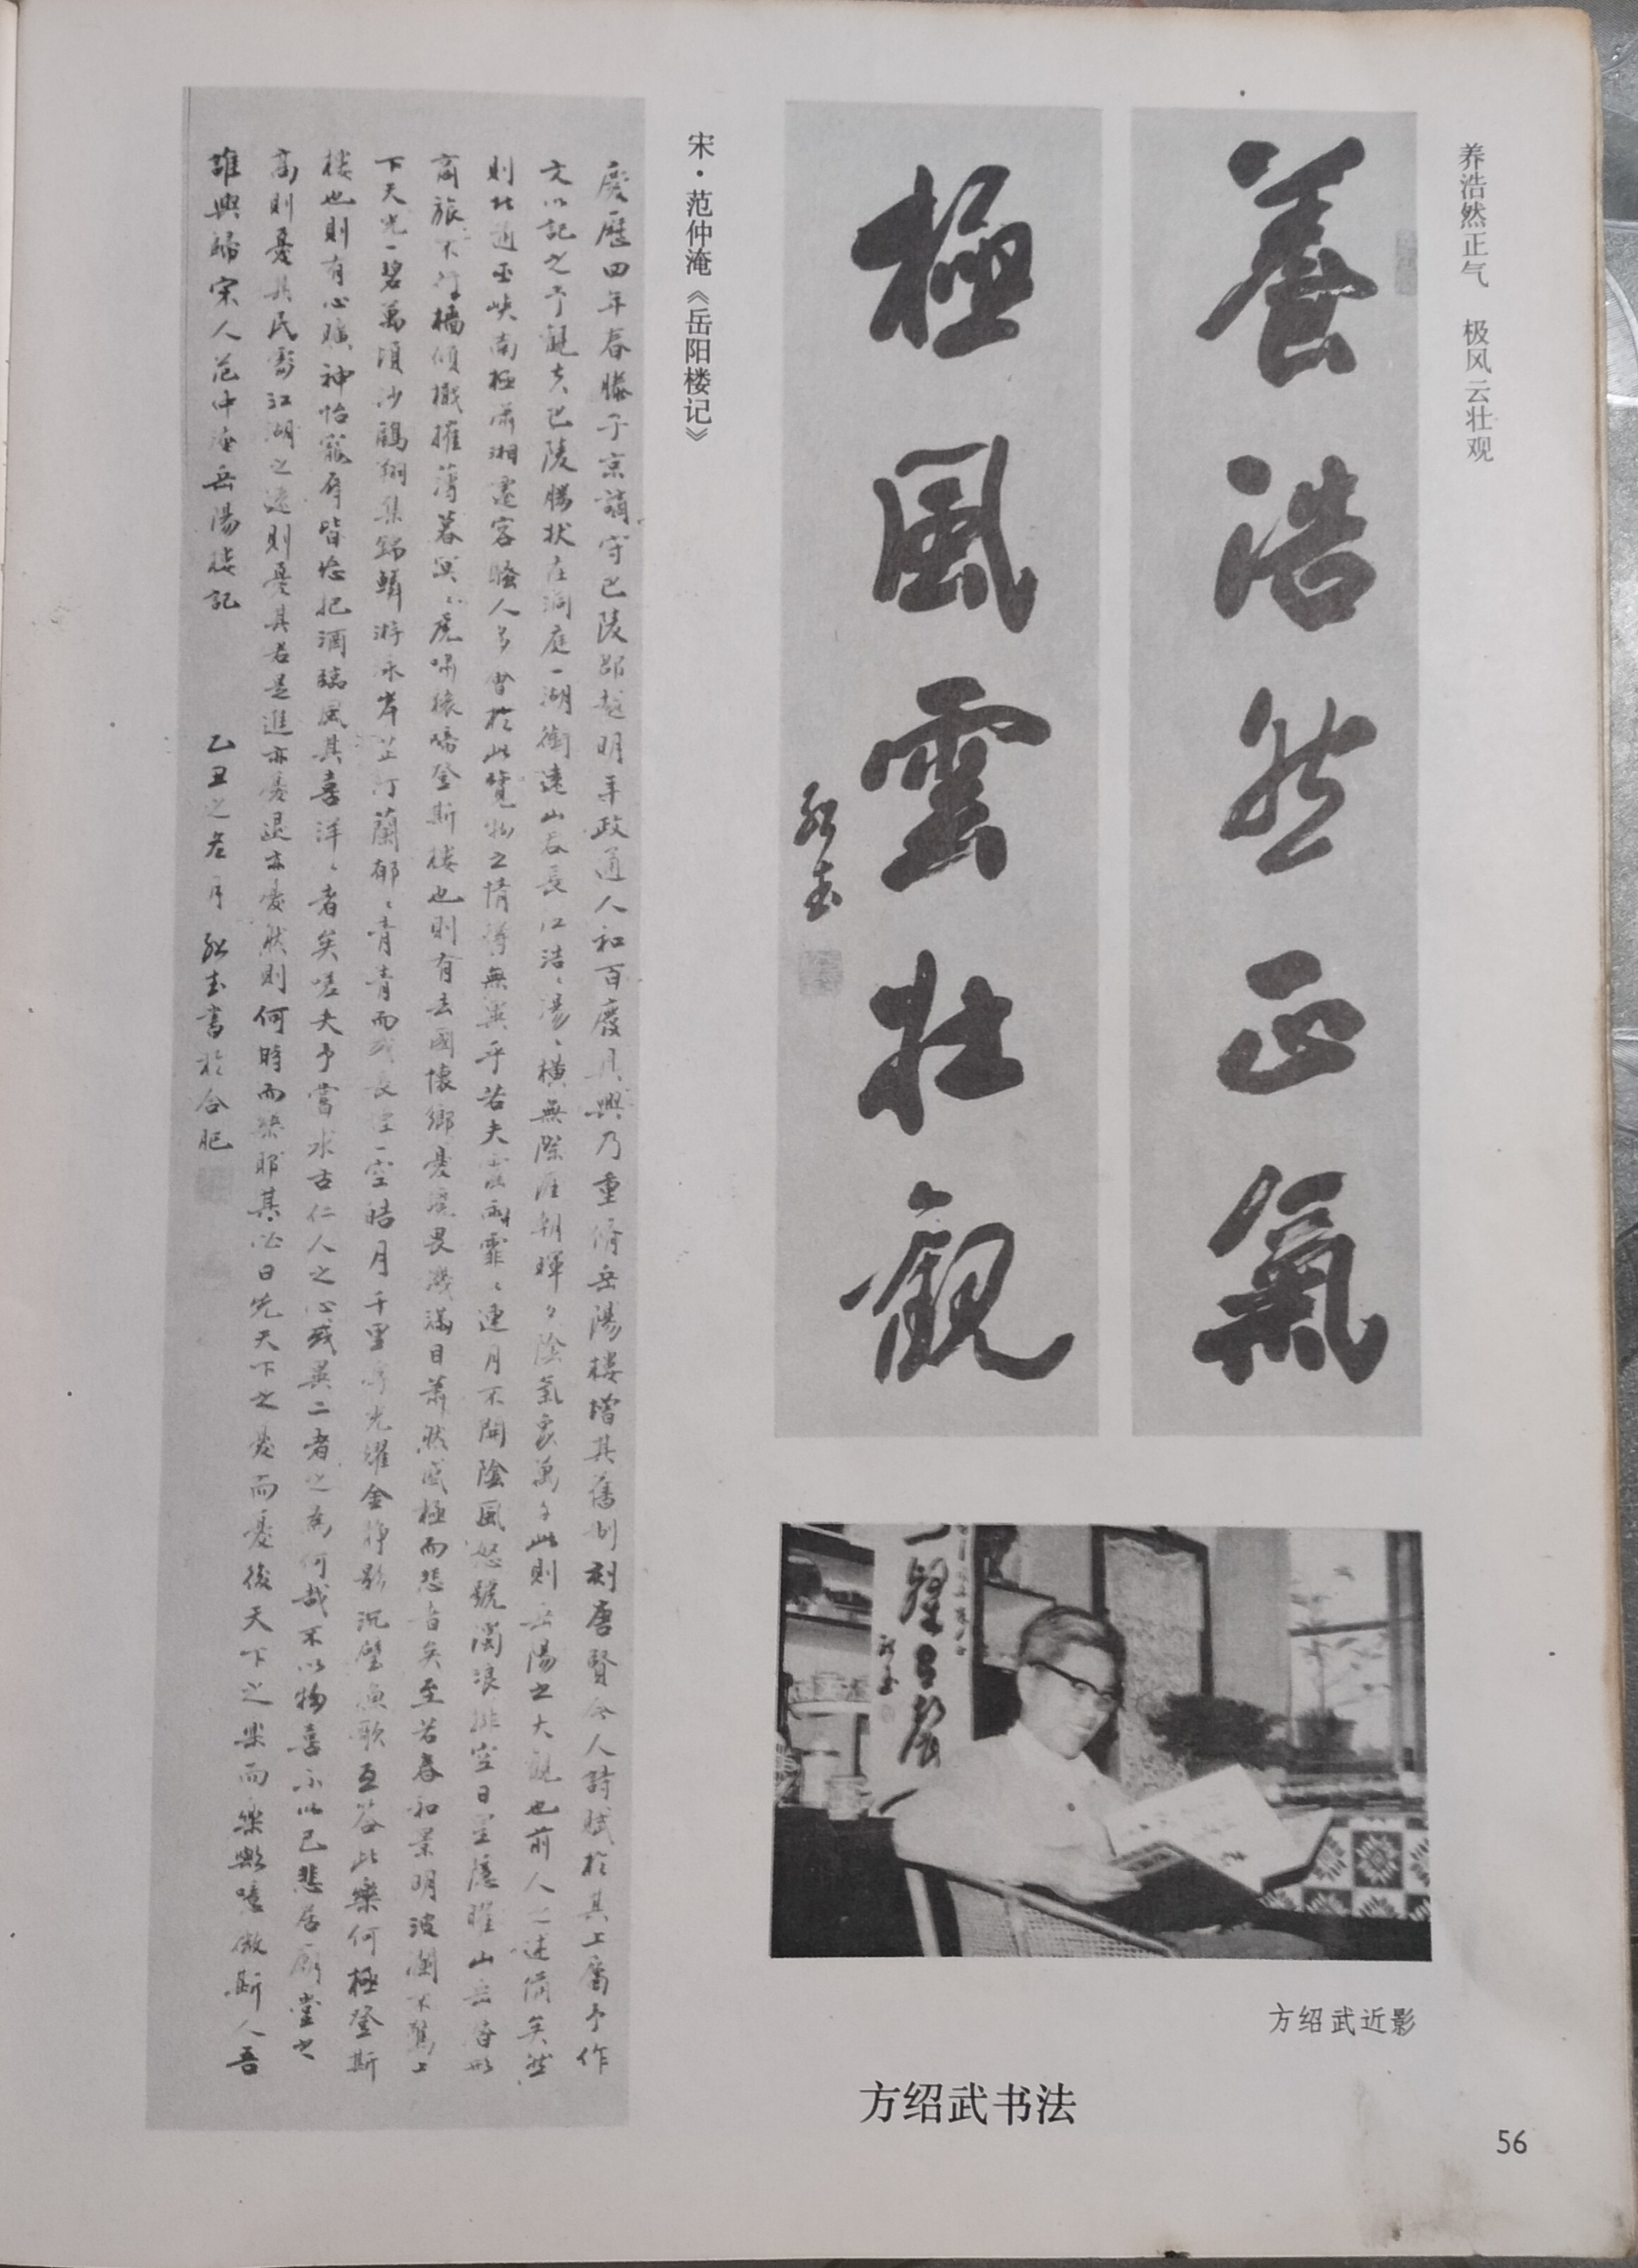 养浩然正气　极风云壮观
養浩然正氣
極風雲壯觀
紹武
宋·范仲淹《岳阳楼记》
慶歷四年春滕子京謫守巴陵郡越明年政通人和百廢具興乃重脩岳陽楼增其舊制刻唐賢今人詩賦於其上屬予作
文以記之予觀夫巴陵勝狀在洞庭一湖銜遠山吞長江浩浩湯湯橫無際涯朝暉夕陰氣象萬千此則岳陽之大觀也前人之述備矣然
則北通巫峽南極瀟湘遷客騷人多會於此覽物之情得無異乎若夫霪雨霏霏連月不開陰風怒號濁浪排空日星隱曜山岳潛形
商旅不行檣傾檝摧薄暮冥冥虎嘯猿啼登斯楼也則有去國懷鄉憂讒畏譏滿目蕭然感極而悲者矣至若春和景明波瀾不驚上
下天光一碧萬頃沙鷗翔集錦鱗游泳岸芷汀蘭郁郁青青而或長煙一空皓月千里浮光耀金靜影沉璧漁歌互答此樂何極登斯
楼也則有心曠神怡寵辱皆忘把酒臨風其喜洋洋者矣嗟夫予嘗求古仁人之心或異二者之為何哉不以物喜不以己悲居廟堂之
高則憂其民處江湖之遠則憂其君是進亦憂退亦憂然則何時而樂耶其必曰先天下之憂而憂後天下之樂而樂歟噫微斯人吾
誰與歸宋人范仲淹岳陽楼記　乙丑之月紹武書於合肥
方绍武近影
方绍武书法
56